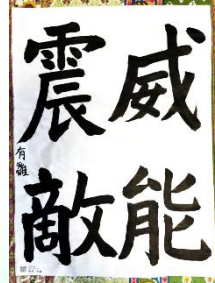 威能
震敵
有雖